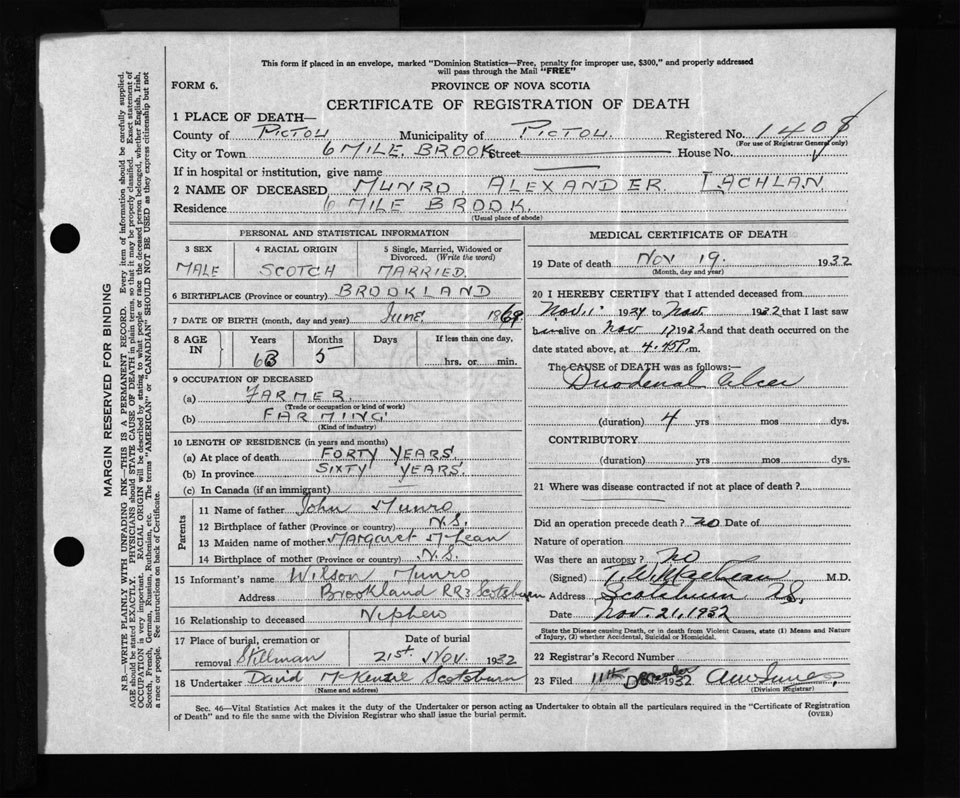 This form if placed in an envelope, marked "Dominion Statistics—Free, penalty for improper use, $300," and properly addressed
will pass through the Mail "FREE"
FORM 6.
PROVINCE OF NOVA SCOTIA
CERTIFICATE OF REGISTRATION OF DEATH
1 PLACE OF DEATH—
County of PICTOU Municipality of PICTOU. Registered No. 1408
(For use of Registrar General only)
City or Town 6 MILE. BROOK Street House No.
If in hospital or institution, give name
2 NAME OF DECEASED MUNRO. ALEXANDER. LACHLAN
Residence 6 MILE BROOK.
(Usual place of abode)
PERSONAL AND STATISTICAL INFORMATION
3 SEX 4 RACIAL ORIGIN 5 Single, Married, Widowed or
Divorced. (Write the word)
MALE SCOTCH MARRIED.
6 BIRTHPLACE (Province or country) BROOKLAND
7 DATE OF BIRTH (month, day and year) June 1869
8 AGE IN Years Months Days If less than one day,
63 5 hrs. or min.
9 OCCUPATION OF DECEASED
(a) FARMER.
(Trade or occupation or kind of work)
(b) FARMING
(Kind of industry)
10 LENGTH OF RESIDENCE (in years and months)
(a) At place of death FORTY YEARS.
(b) In province SIXTY YEARS
(c) In Canada (if an immigrant)
Parents
11 Name of father John Munro
12 Birthplace of father (Province or country) N.S.
13 Maiden name of mother Margaret McLean
14 Birthplace of mother (Province or country) N.S.
15 Informant's name Wilson Munro
Address Brookland RR3 Scotsburn
16 Relationship to deceased Nephew
17 Place of burial, cremation or Date of burial
removal Stillman 21st Nov. 1932
18 Undertaker David McKenzie Scotsburn
(Name and address)
MEDICAL CERTIFICATE OF DEATH
19 Date of death Nov 19. 1932
(Month, day and year)
20 I HEREBY CERTIFY that I attended deceased from
Nov. 1 to Nov 1932 that I last saw
him alive on Nov 1932 and that death occurred on
date stated above, at 4.45 P.m.
The CAUSE of DEATH was as follows:—
Duodenal Ulcer
(duration) 4 yrs mos dys.
CONTRIBUTORY
(duration) yrs mos dys.
21 Where was disease contracted if not at place of death?
Did an operation precede death? no Date of
Nature of operation
Was there an autopsy? no
(Signed) M.D.
Address Scotsburn N.S.
Date Nov. 21, 1932
State the Disease causing Death, or in death from Violent Causes, state (1) Means and Nature
of Injury, (2) whether Accidental, Suicidal or Homicidal.
22 Registrar's Record Number
23 Filed 11th December 1932
(Division Registrar)
Sec. 46—Vital Statistics Act makes it the duty of the Undertaker or person acting as Undertaker to obtain all the particulars required in the "Certificate of Registration
of Death" and to file the same with the Division Registrar who shall issue the burial permit. (OVER)
MARGIN RESERVED FOR BINDING
N.B.—WRITE PLAINLY WITH UNFADING INK—THIS IS A PERMANENT RECORD. Every item of information should be carefully supplied.
AGE should be stated EXACTLY. PHYSICIANS should STATE CAUSE OF DEATH in plain terms, so that it may be properly classified. Exact statement of
OCCUPATION is very important. RACIAL ORIGIN will be described by stating to what people or race the deceased person belonged, whether English, Irish,
Scotch, French, German, Russian, Ruthenian, etc. The terms "AMERICAN" or "CANADIAN" SHOULD NOT BE USED as they express citizenship but not
a race or people. See instructions on back of Certificate.